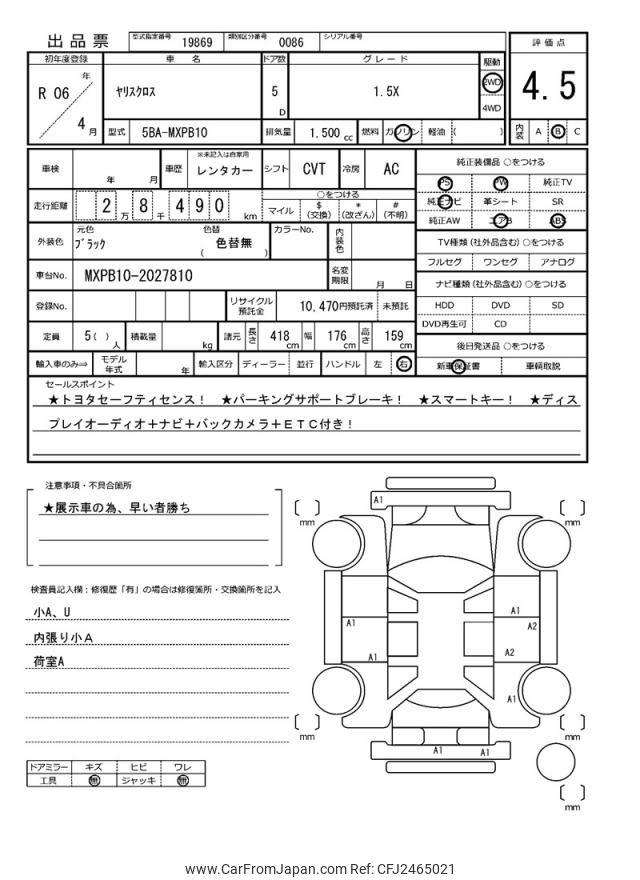 出品票 型式指定番号 19869 類別区分番号 0086 シリアル番号
初年度登録 車名 ドア数 グレード 駆動 評価点
R 06 年 4 月 ヤリスクロス 5 D 1.5X 2WD 4WD 4.5
型式 5BA-MXPB10 排気量 1.500 cc 燃料 ガソリン 軽油 ( ) 内装 A B C
車検 年 月 車歴 ※未記入は自家用 レンタカー シフト CVT 冷房 AC
走行距離 2 万 8 千 4 9 0 km ○をつける マイル $ (交換) * (改ざん) # (不明)
外装色 元色 ブラック 色替 ( 色替無 ) カラーNo. 内装色
車台No. MXPB10-2027810 名変期限 月 日
登録No. リサイクル預託金 10.470円預託済 未預託
定員 5( ) 人 積載量 kg 諸元 長さ 418 cm 幅 176 cm 高さ 159 cm
輸入車のみ⇒ モデル年式 年 輸入区分 ディーラー 並行 ハンドル 左 右
純正装備品 ○をつける
PS PW 純正TV
純正ナビ 革シート SR
純正AW エアB ABS
TV種類 (社外品含む) ○をつける
フルセグ ワンセグ アナログ
ナビ種類 (社外品含む) ○をつける
HDD DVD SD
DVD再生可 CD
後日発送品 ○をつける
新車保証書 車輌取説
セールスポイント
★トヨタセーフティセンス! ★パーキングサポートブレーキ! ★スマートキー! ★ディス
プレイオーディオ+ナビ+バックカメラ+ETC付き!
注意事項・不具合箇所
★展示車の為、早い者勝ち
検査員記入欄:修復歴「有」の場合は修復箇所・交換箇所を記入
小A、U
内張り小A
荷室A
ドアミラー キズ ヒビ ワレ
工具 無 ジャッキ 無
A1
mm mm
A1
A1 A2
A1 A2
A1
mm mm
A1 A1
mm
www.CarFromJapan.com Ref: CFJ2465021